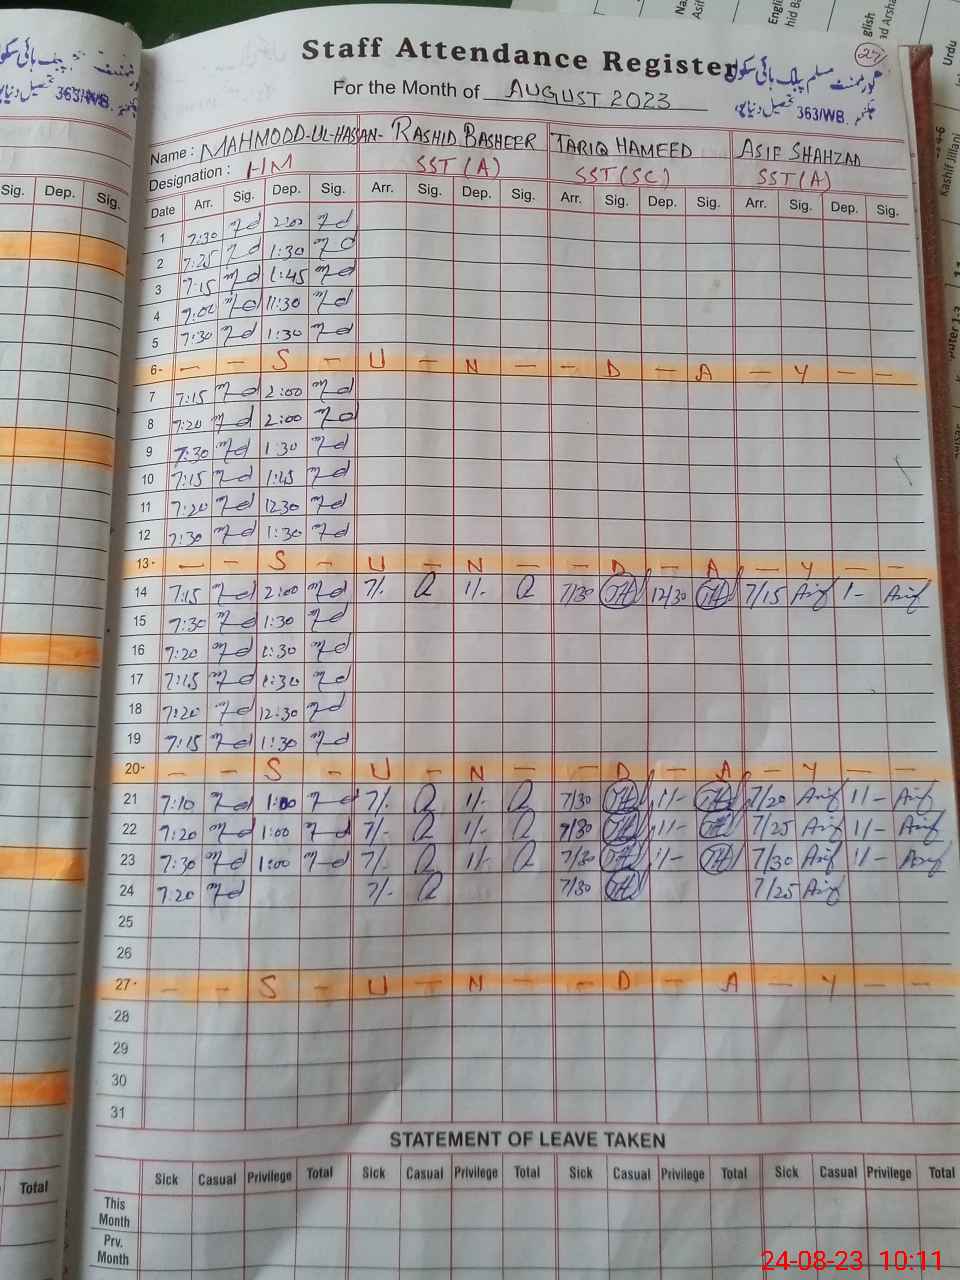 Staff Attendance Register
27
For the Month of AUGUST 2023
گورنمنٹ مسلم پبلک ہائی سکول
363/WB
Name : MAHMOOD-UL-HASSAN- RASHID BASHEER TARIQ HAMEED ASIF SHAHZAD
Designation : HM SST (A) SST (SC) SST (A)
Sig. Dep. Sig.
Date Arr. Sig. Dep. Sig. Arr. Sig. Dep. Sig. Arr. Sig. Dep. Sig. Arr. Sig. Dep. Sig.
1 7:30 2:00
2 7:25 1:30
3 7:15 1:45
4 7:02 11:30
5 7:30 1:30
6 - - - S - U - N - - D - A - Y - -
7 7:15 2:00
8 7:20 2:00
9 7:30 1:30
10 7:15 1:45
11 7:20 12:30
12 7:30 1:30
13 - - - S - U - N - - D - A - Y - -
14 7:15 2:00 7/- 1/- 7/30 12/30 7/15 Asif 1- Asif
15 7:30 1:30
16 7:20 1:30
17 7:15 1:30
18 7:20 12:30
19 7:15 1:30
20 - - - S - U - N - - D - A - Y - -
21 7:10 1:00 7/- 1/- 7/30 1/- 7/20 Asif 1/- Asif
22 7:20 1:00 7/- 1/- 7/30 1/- 7/25 Asif 1/- Asif
23 7:30 1:00 7/- 1/- 7/30 1/- 7/30 Asif 1/- Asif
24 7:20 7/- 7/30 7/25 Asif
25
26
27 - - - S - U - N - - D - A - Y - -
28
29
30
31
STATEMENT OF LEAVE TAKEN
Sick Casual Privilege Total Sick Casual Privilege Total Sick Casual Privilege Total Sick Casual Privilege Total
Total
This Month
Prv. Month
24-08-23 10:11